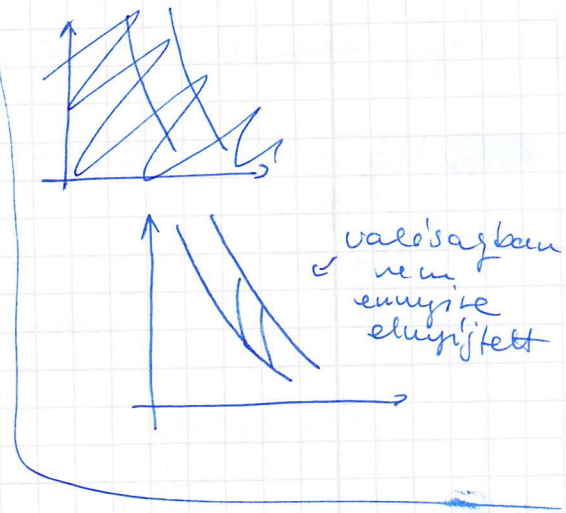 valóságban
nem
ennyire
elnyújtett